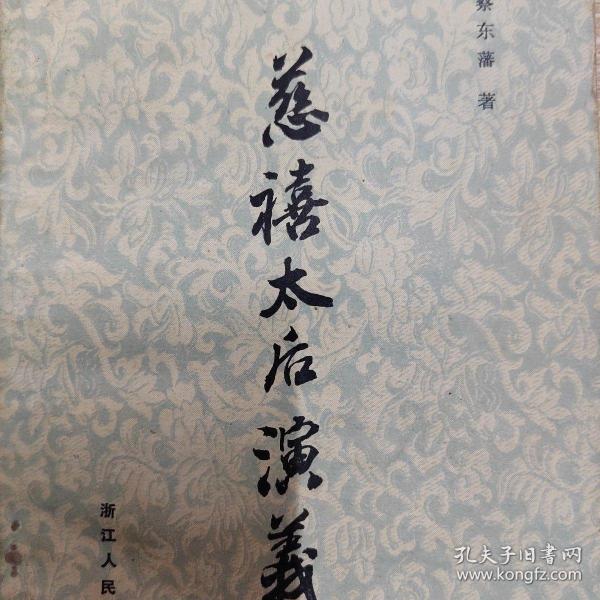 蔡东藩 著
慈禧太后演義
浙江人民
孔夫子旧书网
www.kongfz.com